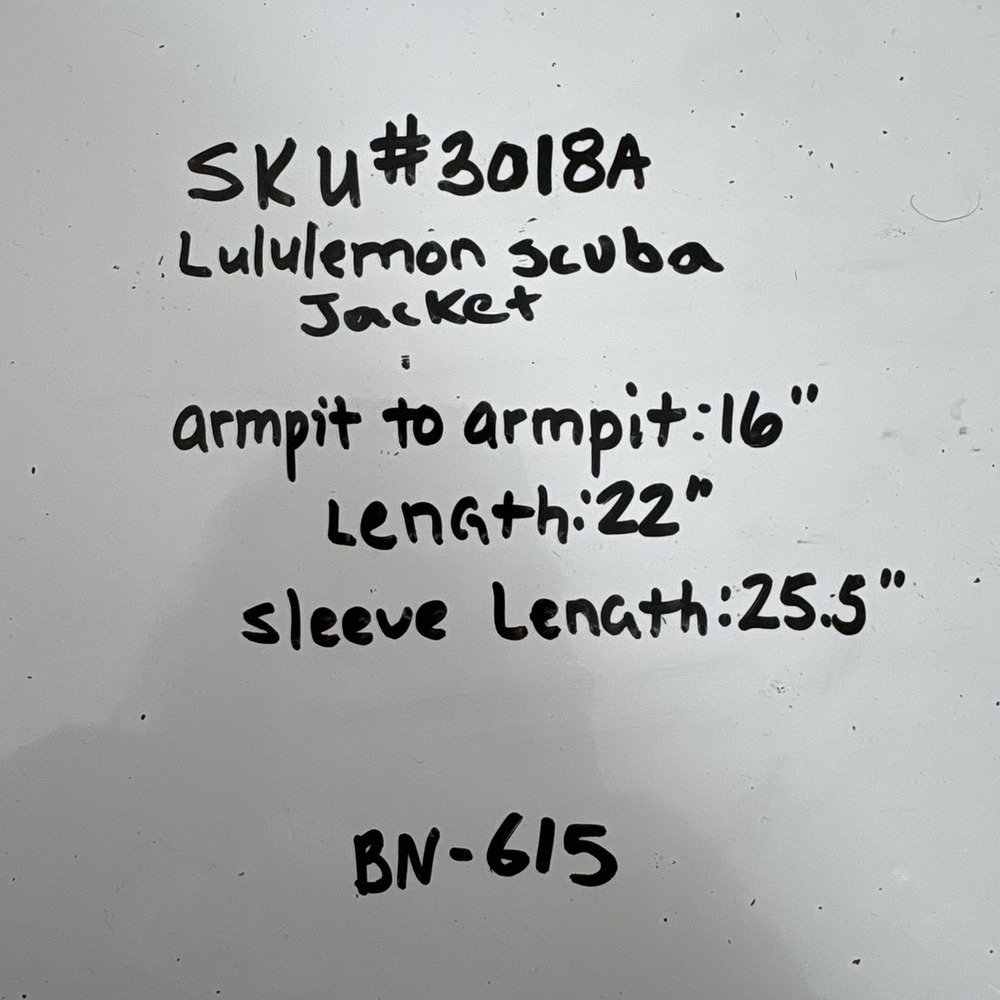 SKU#3018A
Lululemon scuba
Jacket
armpit to armpit:16"
Length:22"
sleeve Length:25.5"
BN-615